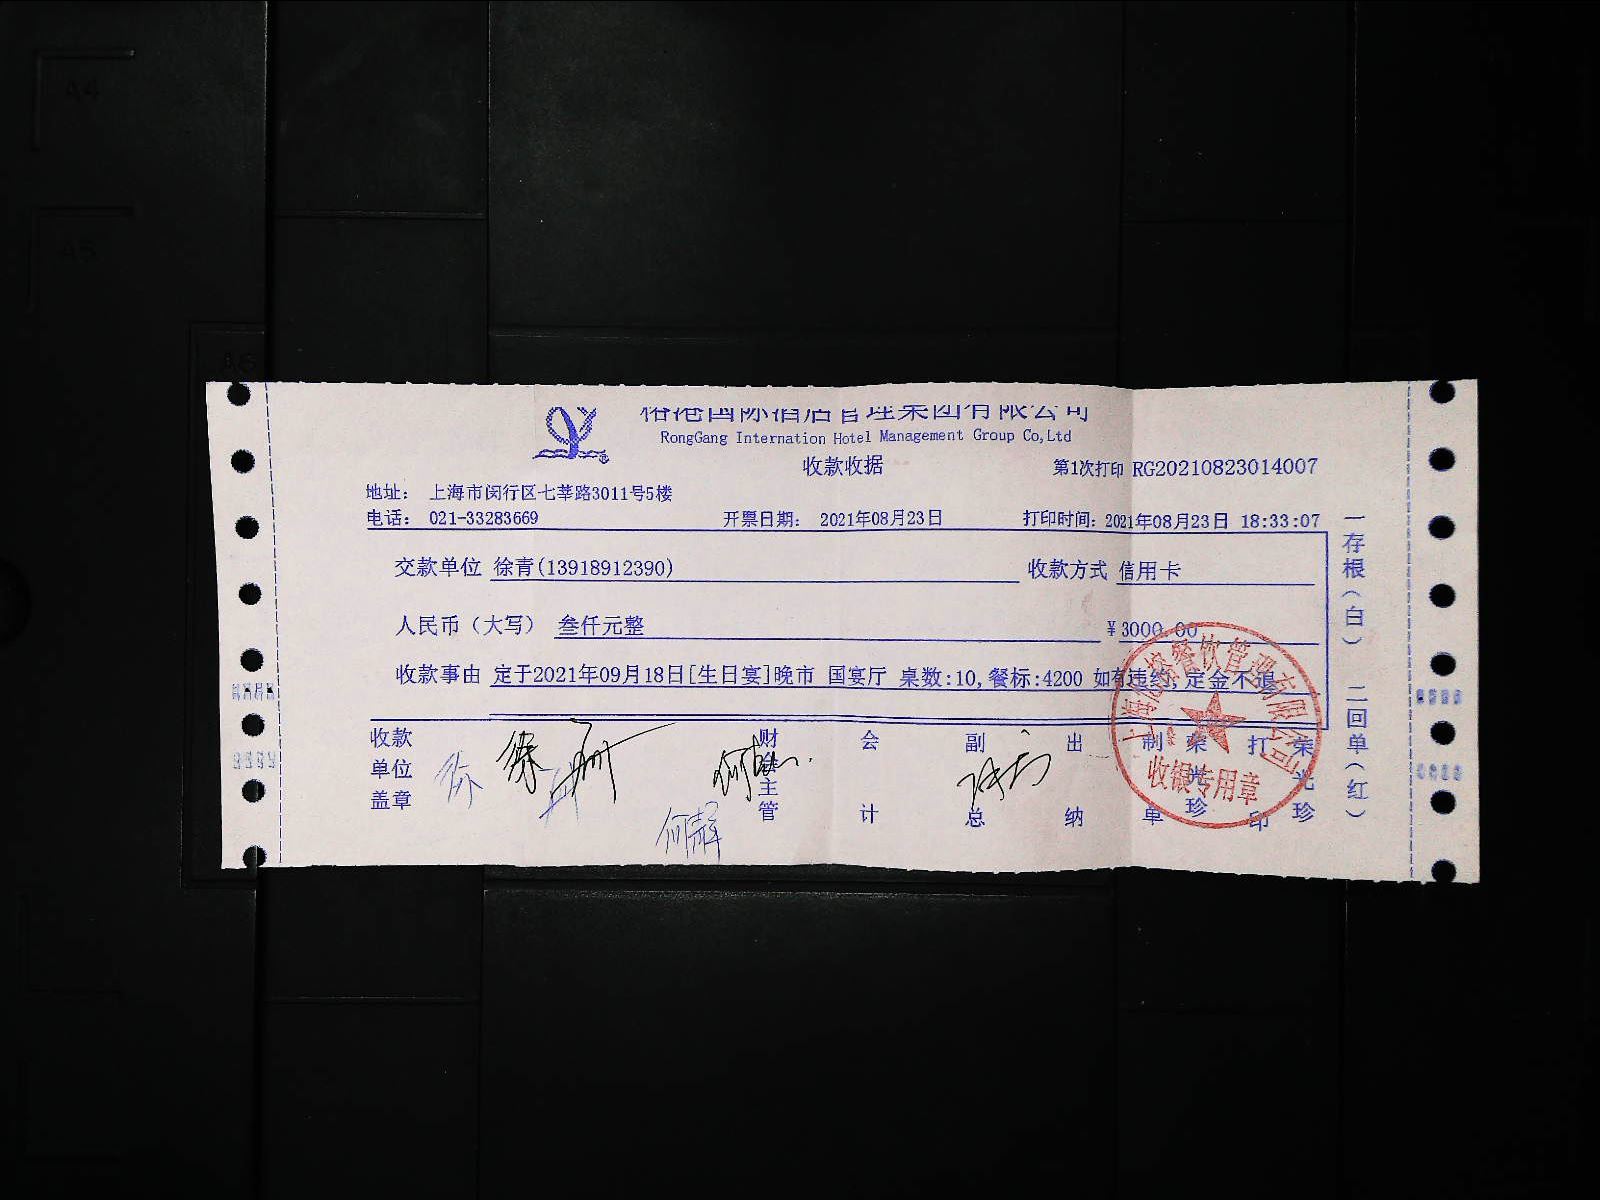 港国际酒店管理集团有限公司
RongGang Internation Hotel Management Group Co,Ltd
收款收据
第1次打印 RG20210823014007
地址： 上海市闵行区七莘路3011号5楼
电话： 021-33283669 开票日期： 2021年08月23日 打印时间：2021年08月23日 18:33:07
交款单位 徐青(13918912390) 收款方式 信用卡
人民币（大写） 叁仟元整 ¥3000.00
收款事由 定于2021年09月18日[生日宴]晚市 国宴厅 桌数:10,餐标:4200 如有违约,定金不退
收款单位盖章
财会主管
会计
副总
出纳
制单 荣光珍
打印 荣光珍
何静
收银专用章
一存根（白） 二回单（红）
A4
A5
A6